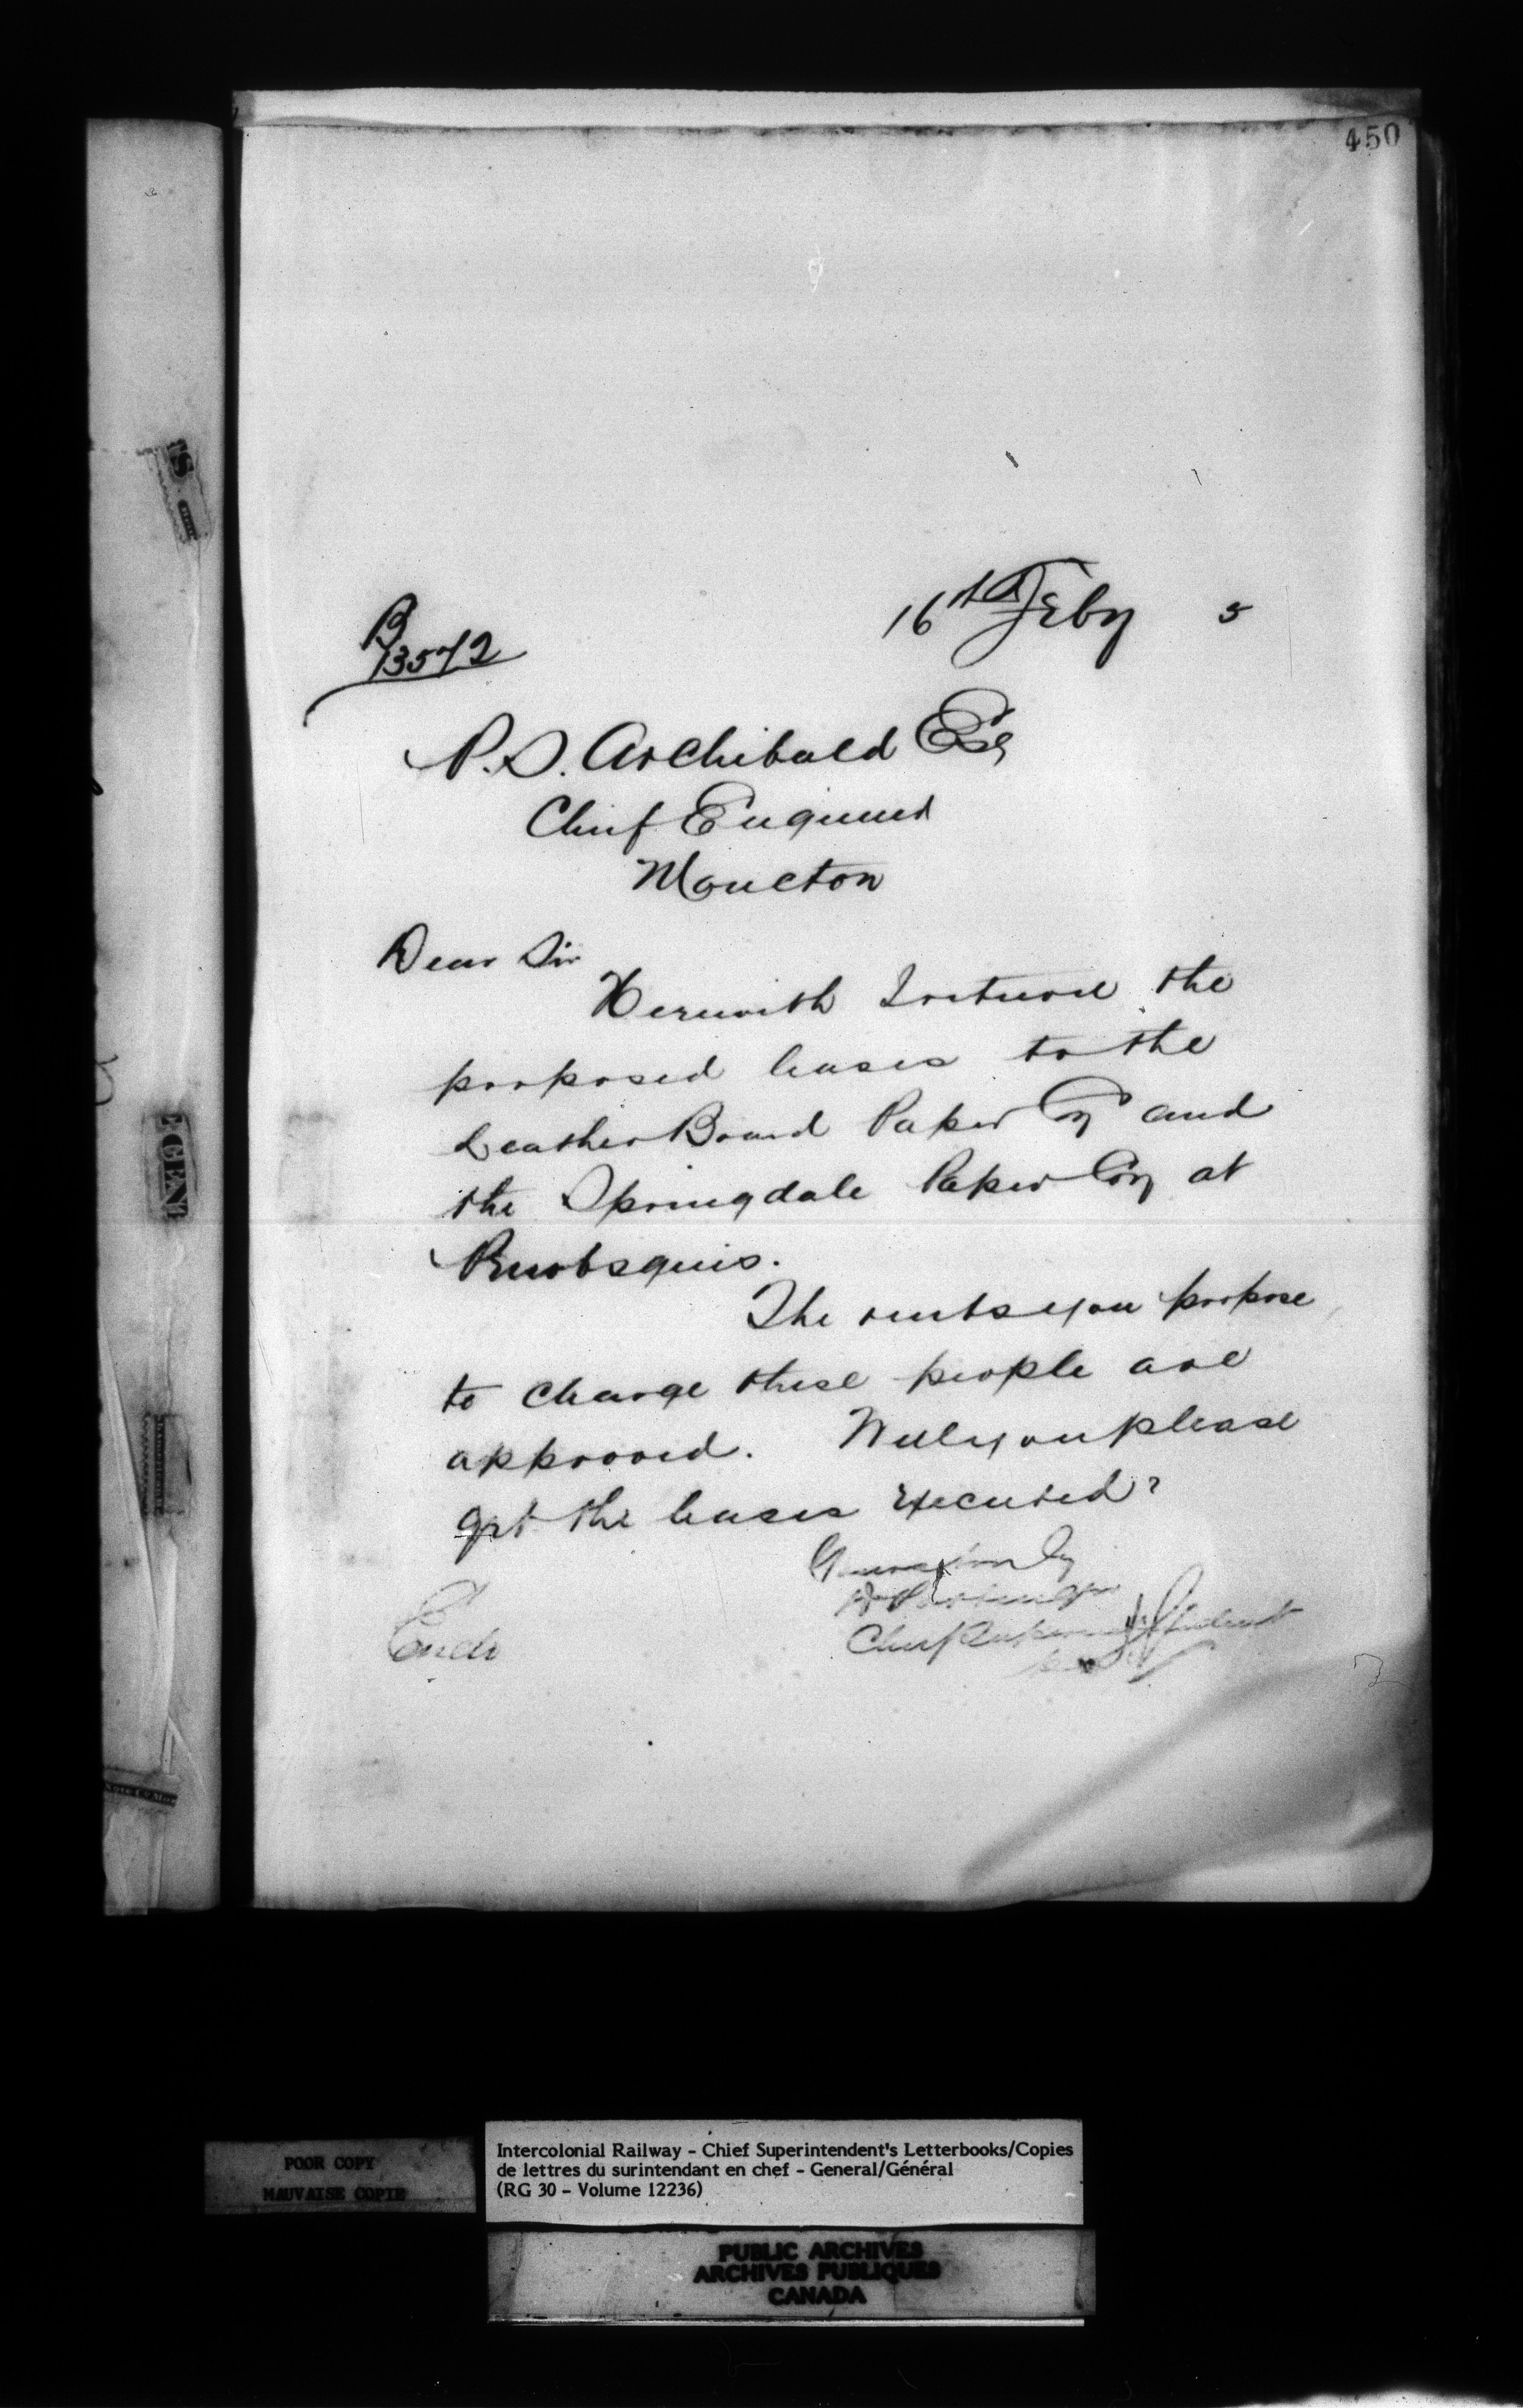 450
16th Feby 5
B
13572
P.S. Archibald Esq
Chief Engineer
Moncton
Dear Sir
Herewith I return the
proposed leases to the
Leather Board Paper Coy and
the Springdale Paper Coy at
Penobsquis.
The rents you propose
to charge these people are
approved. Will you please
get the leases executed?
Yours truly
D Pottinger
Chief Superintendent
Encls
POOR COPY
MAUVAISE COPIE
Intercolonial Railway - Chief Superintendent's Letterbooks/Copies
de lettres du surintendant en chef - General/Général
(RG 30 - Volume 12236)
PUBLIC ARCHIVES
ARCHIVES PUBLIQUES
CANADA